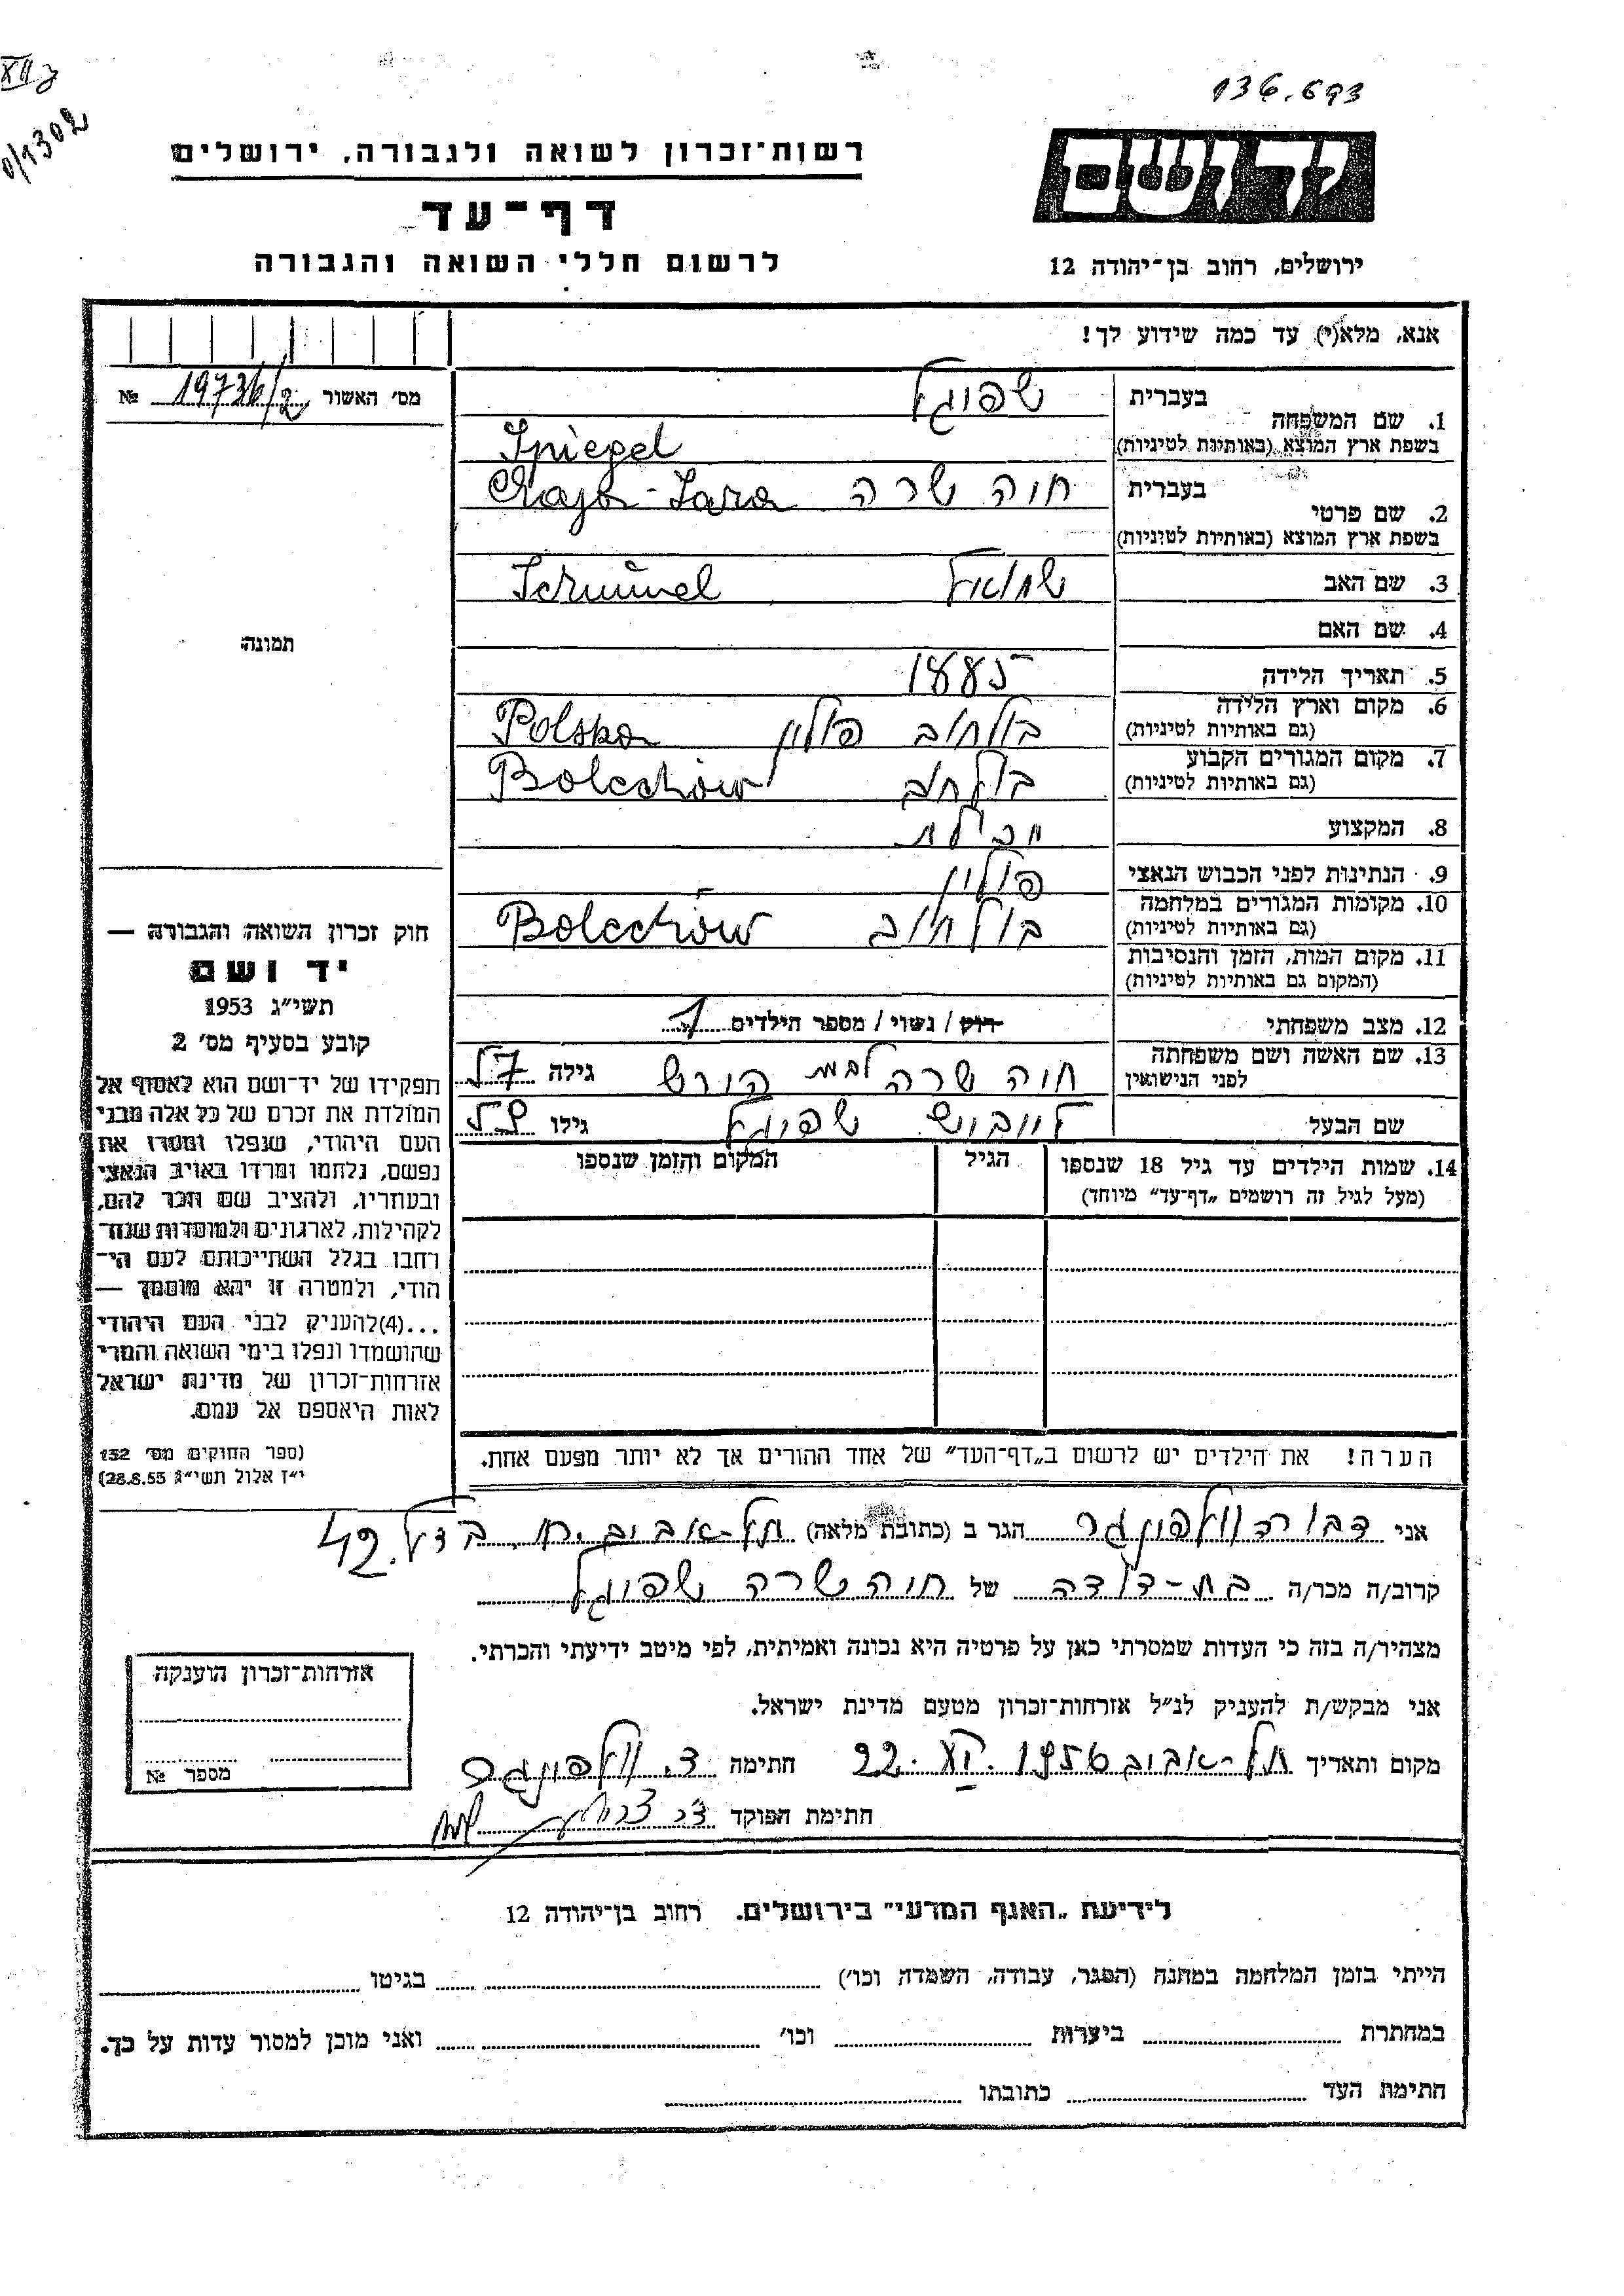 136.693
רשות־זכרון לשואה ולגבורה, ירושלים
דף־עד
לרשום חללי השואה והגבורה
יד ושם
ירושלים, רחוב בן־יהודה 12
אנא, מלא(י) עד כמה שידוע לך!
מס׳ האשור 19736/2 №
1. שם המשפחה בעברית שפיגל
בשפת ארץ המוצא (באותיות לטיניות) Spiegel
2. שם פרטי בעברית חוה שרה Chaja-Sara
בשפת ארץ המוצא (באותיות לטיניות)
3. שם האב שמואל Schmuel
4. שם האם
5. תאריך הלידה 1885
6. מקום וארץ הלידה בולחוב פולין Polska
(גם באותיות לטיניות)
7. מקום המגורים הקבוע בולחוב Bolechów
(גם באותיות לטיניות)
8. המקצוע
9. הנתינות לפני הכבוש הנאצי פולין
10. מקומות המגורים במלחמה בולחוב Bolechów
(גם באותיות לטיניות)
11. מקום המות, הזמן והנסיבות
(המקום גם באותיות לטיניות)
12. מצב משפחתי רווק / נשוי / מספר הילדים 1
13. שם האשה ושם משפחתה חוה שרה לבית הורש גילה 57
לפני הנישואין
שם הבעל לייבוש שפיגל גילו 59
14. שמות הילדים עד גיל 18 שנספו הגיל המקום והזמן שנספו
(מעל לגיל זה רושמים „דף־עד״ מיוחד)
הערה! את הילדים יש לרשום ב„דף־העד״ של אחד ההורים אך לא יותר מפעם אחת.
תמונה
חוק זכרון השואה והגבורה —
יד ושם
תשי״ג 1953
קובע בסעיף מס׳ 2
תפקידו של יד־ושם הוא לאסוף אל
המולדת את זכרם של כל אלה מבני
העם היהודי, שנפלו ומסרו את
נפשם, נלחמו ומרדו באויב הנאצי
ובעוזריו, ולהציב שם וזכר להם,
לקהילות, לארגונים ולמוסדות שנח־
רבו בגלל השתייכותם לעם הי־
הודי, ולמטרה זו יהא מוסמך —
...(4)להעניק לבני העם היהודי
שהושמדו ונפלו בימי השואה והמרי
אזרחות־זכרון של מדינת ישראל
לאות היאספם אל עמם.
(ספר החוקים מס׳ 132
י״ז אלול תשי״ג 28.8.53)
אני דבורה הגר ב (כתובת מלאה) תל-אביב 42
קרוב/ה מכר/ה בת-דודה של חוה שרה שפיגל
מצהיר/ה בזה כי העדות שמסרתי כאן על פרטיה היא נכונה ואמיתית, לפי מיטב ידיעתי והכרתי.
אני מבקש/ת להעניק לנ״ל אזרחות־זכרון מטעם מדינת ישראל.
מקום ותאריך תל-אביב 1956 22. חתימה ד.
חתימת הפוקד
אזרחות־זכרון הוענקה
מספר №
לידיעת „האגף המדעי״ בירושלים. רחוב בן־יהודה 12
הייתי בזמן המלחמה במחנה (הסגר, עבודה, השמדה וכו׳) בגיטו
במחתרת ביערות וכו׳ ואני מוכן למסור עדות על כך.
חתימת העד כתובתו